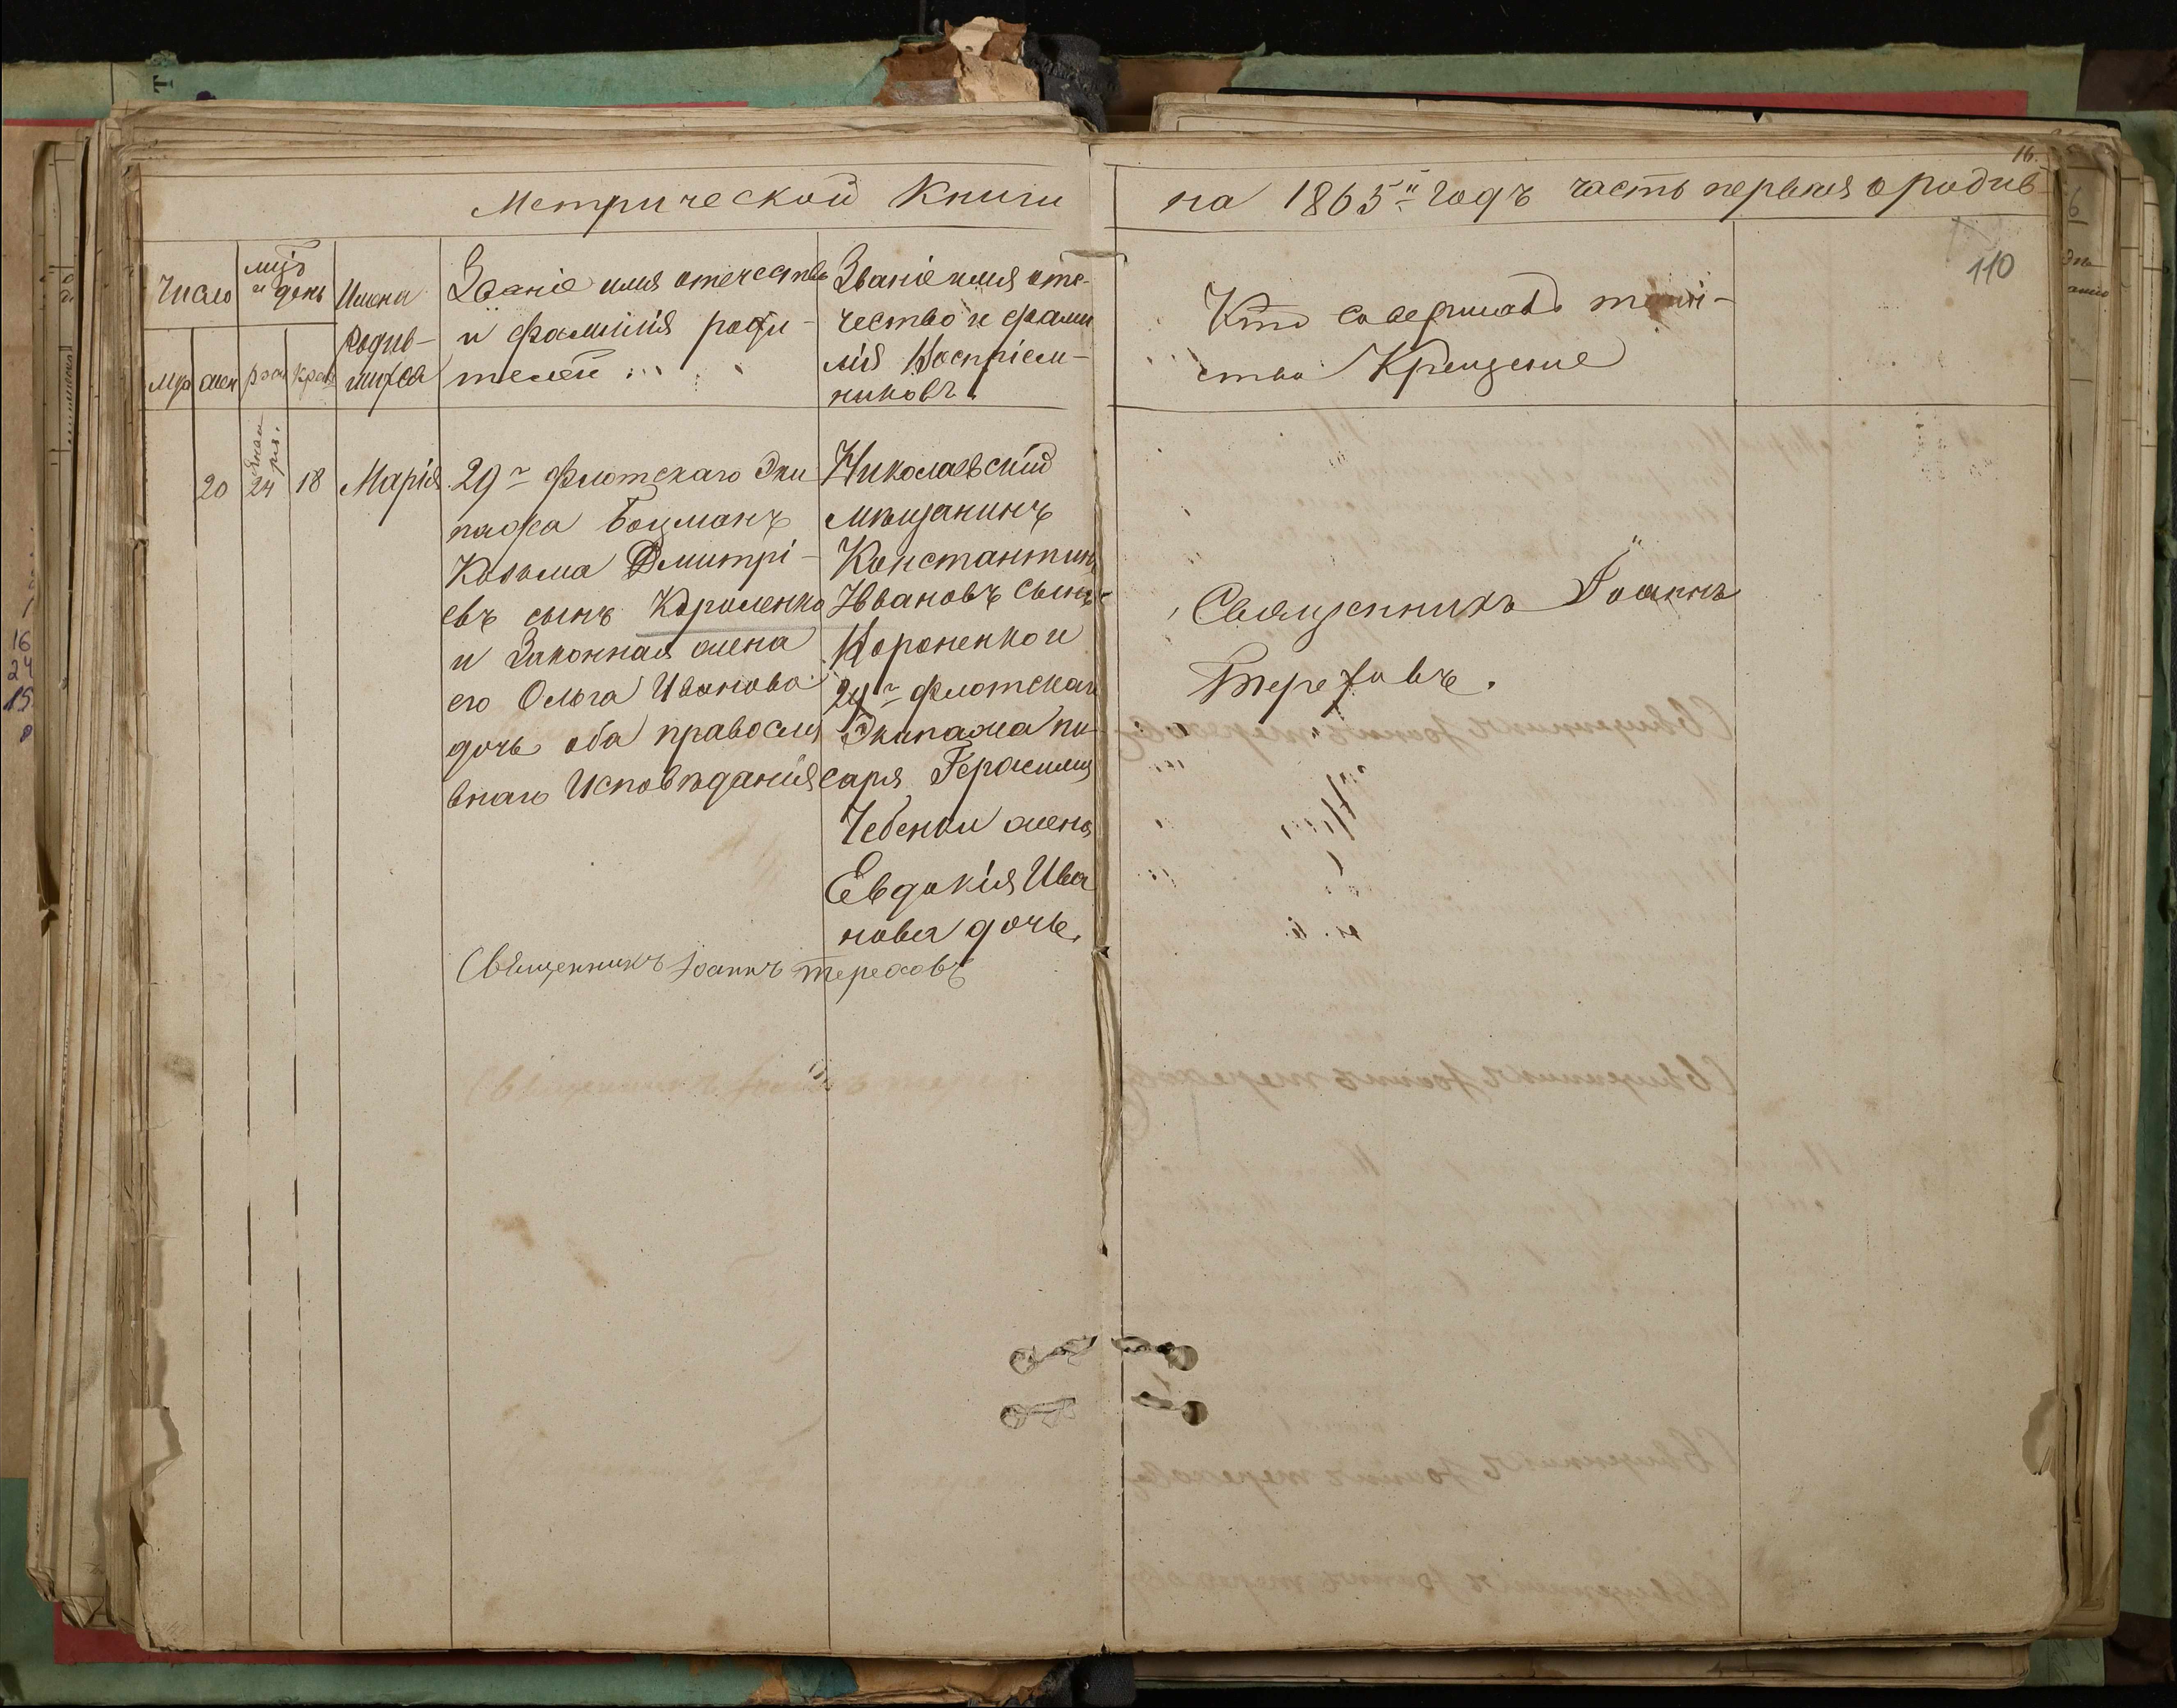 Метрической Книги
на 1865й годъ часть первая о родив
16.
110
Число
мцъ
и день
Имена
Родив-
шихся
муж
жен
рож
крещ
Званіе имя отечество
и фамилія роди-
телей
Званіе имя оте-
чество и фами
лія Воспріем-
никовъ
Кто совершалъ таин-
ство Крещенiе
20
Янва
ря.
24
18
Марія
29го Флотскаго Эки
пажа Боцманъ
Козьма Дмитрі-
евъ сынъ Короленко
и Законная жена
его Ольга Иванова
дочь оба правосла
внаго Исповѣданія
Николаевскій
мѣщанинъ
Константинъ
Ивановъ сынъ
Вороненко и
29го Флотскаго
Экипажа пи-
саря Герасима
Чебенки жена
Евдокія Ива
нова дочь.
Священникъ Іоаннъ
Тереховъ.
Священникъ Іоаннъ Тереховъ